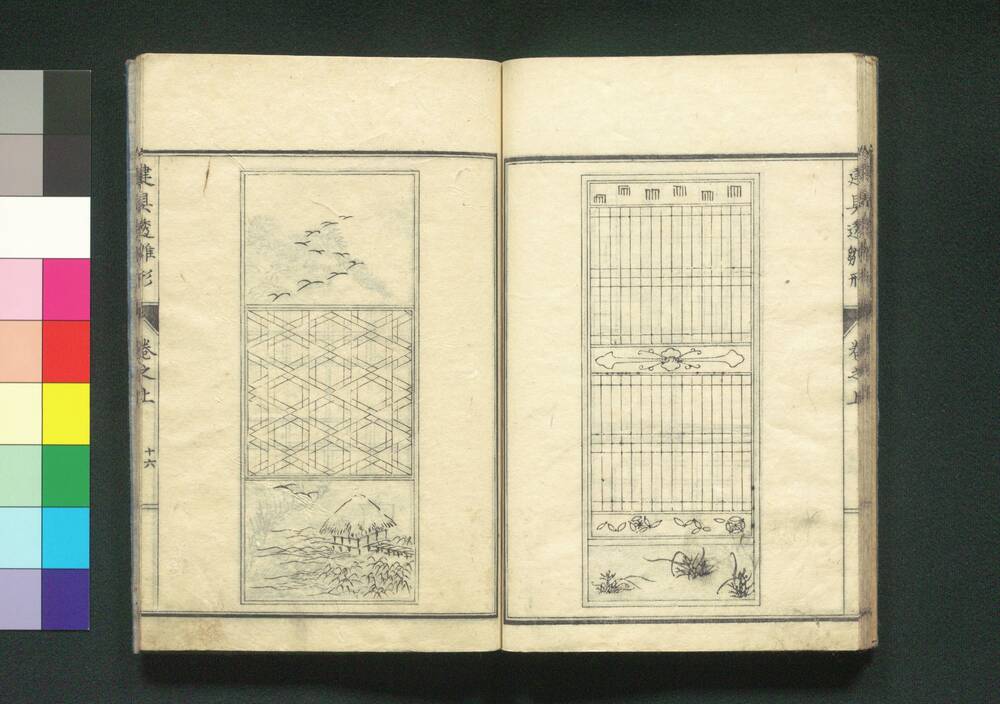 建具透雛形
卷之上
建具透雛形
卷之上
十六